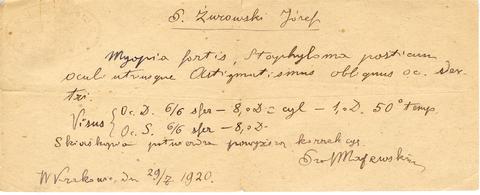 P. Żurowski Józef
Myopia fortis, Staphyloma posticum
oculi utriusque Astigmatismus obliquus oc. dex-
tri.
Visus { Oc. D. 6/6 sfer – 8,0D = cyl – 1,0D. 50° temp.
Oc. S. 6/6 sfer – 8,0D.
Skiaskopia potwierdza powyższą korrekcyę.
Prof Majewski
W Krakowie, dn 29/ 1920.